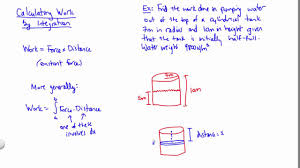 Calculating Work
by Integration
Work = Force × Distance
(constant force)
More generally:
Work = ∫ Force · Distance
one of these
involves dx
Ex: Find the work done in pumping water
out of the top of a cylindrical tank
in radius and 10m in height given
that the tank is initially half-full.
Water weighs 9800N/m³
5m
10m
distance = x